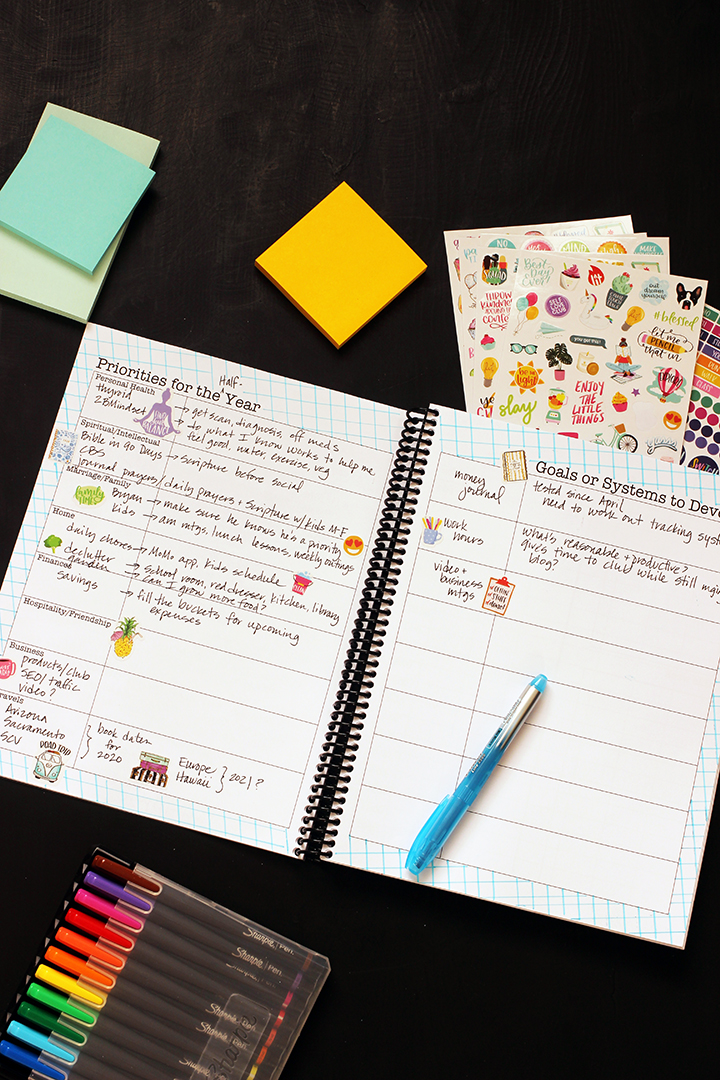 Half-
Priorities for the Year
Personal Health
thyroid
2BMindset
→ get scan, diagnosis, off meds
→ do what I know works to help me
feel good. water, exercise, veg
Spiritual/Intellectual
Bible in 90 Days
CBS
→ Scripture before social
journal prayers/daily prayers + Scripture w/kids M-F
Marriage/Family
family time
Bryan
kids
→ make sure he knows he's a priority
→ am mtgs, lunch lessons, weekly outings
Home
daily chores
declutter
garden
→ MoMo app, kids schedule
→ School room, red dresser, kitchen, library
→ Can I grow more food?
Finances
savings
→ fill the buckets for upcoming
expenses
Hospitality/Friendship
Business
products/club
SEO/traffic
video?
ravels
Arizona
Sacramento
SCV
book dates
for
2020
Europe
Hawaii
2021?
ROAD TRIP
Goals or Systems to Deve
money
journal
tested since April
need to work out tracking syst
work
hours
what's reasonable + productive?
gives time to club while still
blog?
video +
business
mtgs
NO
Best
Day Ever
SQUAD
THROW
kindness
around like
confetti
SELF
LOVE
CLUB
out
dream
yourself
#blessed
let me
PENCIL
that in
you got this!
be the
light
slay
ENJOY
THE
LITTLE
THINGS
Sharpie Pen
Sharpie Pen
Sharpie Pen
Sharpie
Sharpie